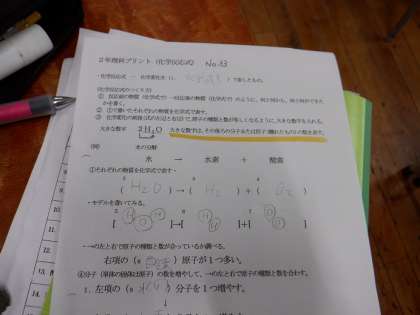 2年理科プリント (化学反応式) No.13
・化学反応式 … 化学変化を(1. 化学式 )で表したもの。
(化学反応式のつくり方)
① 反応前の物質(化学式で)→反応後の物質(化学式で)のように、何と何から、何と何ができたかを書く。
② ①で書いたそれぞれの物質を化学式で表す。
③ 化学変化の前後(式の左辺と右辺)で、原子の種類と数が等しくなるように、大きな数字を入れる。
大きな数字 2H₂O 大きな数字は、その後ろの分子または原子(離れたもの)の数を表す。
(例) 水の分解
水 → 水素 + 酸素
①それぞれの物質を化学式で表す・
( H₂O ) → ( H₂ ) + ( O₂ )
・モデルを書いてみる。
[ H O H ]→[ H H ]+[ O O ]
・→の左と右で原子の種類と数が合っているか調べる。
右項の(8 酸素 )原子が1つ多い。
④分子(単体の固体は原子)の数を増やして、→の左と右で原子の種類と数を合わす。
1. 左項の( 水 )分子を1つ増やす。
↓